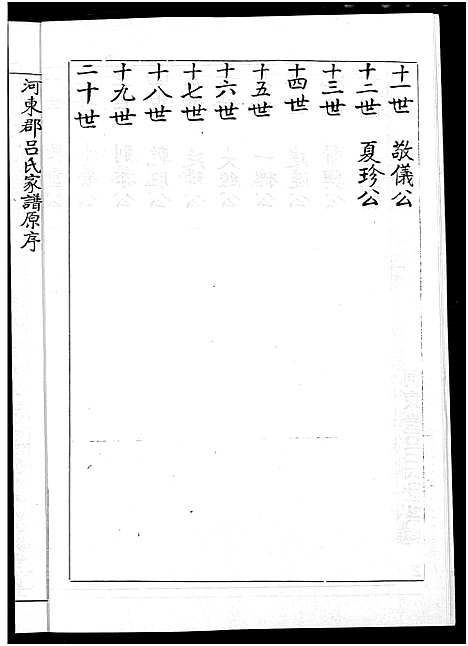 十一世　敬儀公
十二世　夏珍公
十三世
十四世
十五世
十六世
十七世
十八世
十九世
二十世
河東郡呂氏家譜原序